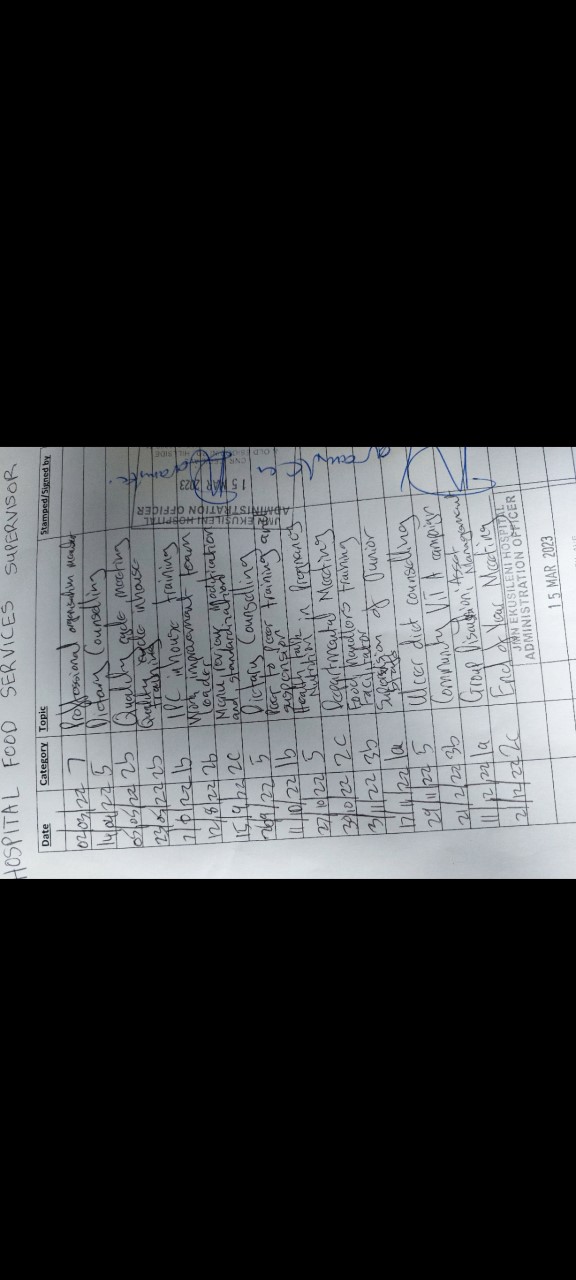 HOSPITAL FOOD SERVICES SUPERVISOR
Date Category Topic Stamped/Signed by
7 Proffessional organisation member
5 Dietary Counselling
2b Quality cycle meeting
2b Quality cycle inhouse
training
1b IPC inhouse training
12/8/22 2b Work improvement team
leader
15/9/22 2c Menu review, Modification
and standardization
5 Dietary Counselling
11/10/22 1b Peer to Peer training and
supervision
27/10/22 5 Health talk
Nutrition in Pregnancy
30/10/22 2C Departmental Meeting
3/11/22 3b Food handlers training
facilitator
17/11/22 1a Supervision of Junior
29/11/22 5 Ulcer diet counselling
2/12/22 3b Community Vit A campaign
11/12/22 1a Group Discussion: Asset
Management
21/12/22 2c End of Year Meeting
JMN EKUSILENI HOSPITAL
ADMINISTRATION OFFICER
15 MAR 2023
JMN EKUSILENI HOSPITAL
ADMINISTRATION OFFICER
15 MAR 2023